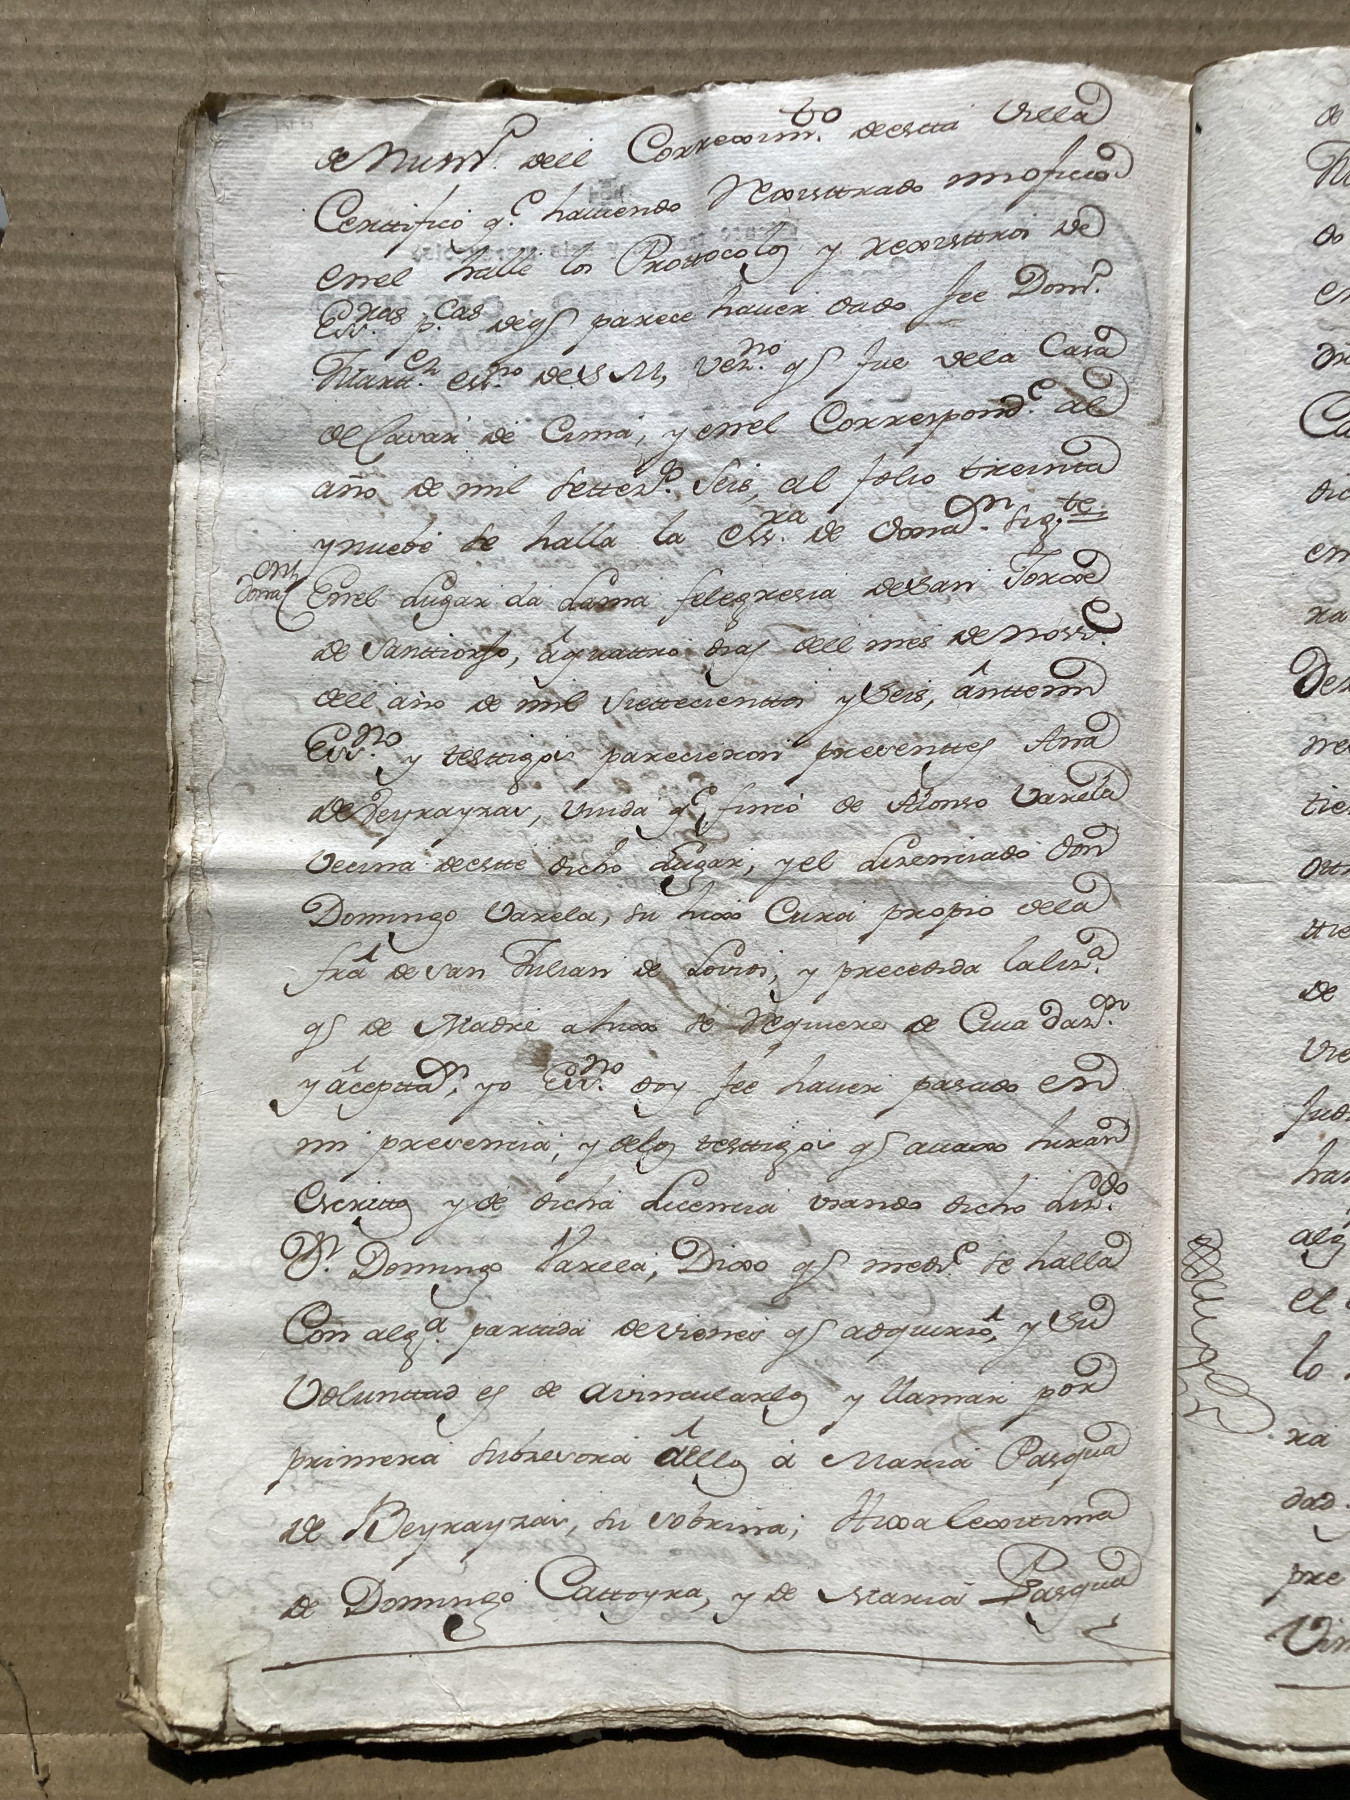 de Num.º dell Correxim.to de estta Villa
Certtifico q.e haviendo Rexisttrado mi oficio
en el halle los Prottocolos y rexisttros de
Ess.ras p.cas de q.s parece haver dado fee Dom.º
Martt.ez ess.no de S. M, vez.no q.s fue dela Casa
de Cavar de Cima, y en el Correspond.e al
año de mil settez.s Seis, al folio treinta
y nuebe se halla la ess.ra de Donaz.n sig.te
En el Lugar da Lama felegresia de San Jorxe
de Santtiorxo, á quattro dias dell mes de Nov.e
dell año de mil siettecienttos y Seis, ántte mi
Ess.no y testtigos parecieron presenttes Ana
de Seyxayzas, viuda q.e fincó de Alonso Varela
vecina de estte dicho Lugar, y el Lizenciado don
Domingo Varela, su hixo Cura propio dela
frâ de San Julian de Lovios, y precedida la liz.a
q.s de Madre a hixo se Requiere de Cua daz.n
y áceptaz.n, yo Ess.no doy fee haver pasado en
mi presencia, y delos testtigos q.s avaxo hiran
Escrittos y de dicha Licencia usando dicho Liz.do
D.n Domingo Varela, Dixo q.s medt.e se halla
Con alg.a partida de vienes q.s adquirió, y su
Voluntad es de avincularlos y llamar por
primera subzesora á ellos á Maria Pasqua
de Seyxayzas, su sobrina, Hixa lexitima
de Domingo Cattoyra, y de Maria Pasqua